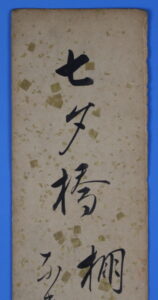 七夕橋
棚